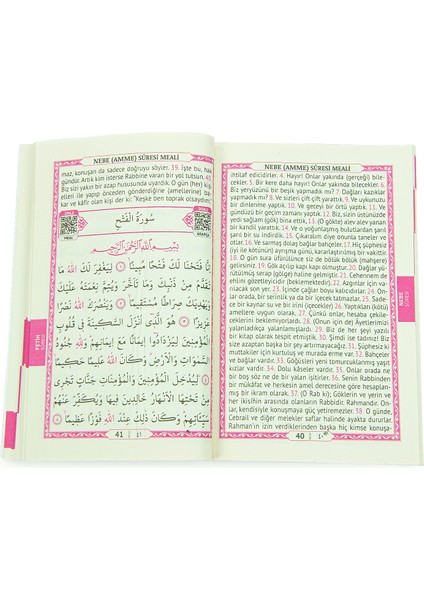 NEBE (AMME) SÛRESİ MEALİ
ihtilaf edicidirler. 4. Hayır! Onlar yakında (gerçeği) bile-
cekler. 5. Bir kere daha hayır! Onlar yakında bilecekler. 6.
Biz yeryüzünü bir beşik yapmadık mı? 7. Dağları kazıklar
yapmadık mı? 8. Ve sizleri çift çift yarattık. 9. Ve uykunuzu
bir dinlenme yaptık. 10. Ve geceyi bir örtü yaptık. 11. Ve
gündüzü bir geçim zamanı yaptık. 12. Biz, sizin üstünüzde
yedi sağlam (gök) bina ettik. 13. (O gökte) alev alev yanan
bir kandil yarattık. 14. Ve o yoğunlaşmış bulutlardan şarıl
şarıl bir su indirdik. 15. Çıkaralım diye onunla taneler ve
otlar. 16. Ve sarmaş dolaş bağlar bahçeler. 17. Hiç şüphesiz
(iyi ile kötünün) ayrışma günü, kararlaştırılmış bir vakittir.
18. O gün sura üfürülünce siz de bölük bölük (mahşere)
gelirsiniz. 19. Gök açılıp kapı kapı olmuştur. 20. Dağlar yü-
rütülmüş serap (gölge) haline gelmiştir. 21. Cehennem de
ehlini gözetleyicidir (beklemektedir). 22. Azgınlar için va-
rılacak son yer. 23. İçinde çağlar boyu kalıcıdırlar. 24. On-
lar orada, bir serinlik ya da bir içecek tatmazlar. 25. Sade-
ce bir kaynar su ve bir irin (içerler). 26. Yaptıkları (kötü)
işlere uygun olarak. 27. Çünkü onlar, hesaba çekile-
ceklerini beklemiyorlardı. 28. (Onun için de) Âyetlerimizi
yalanladıkça yalanlamışlardı. 29. Biz de her şeyi yazılı
bir kitap olarak tespit etmiştik. 30. Şimdi ise tadınız! Biz
size azaptan başka bir şey artırmayacağız. 31. Şüphesiz ki
muttakiler için kurtuluş ve murada erme var. 32. Bahçeler
ve bağlar vardır. 33. Göğüsleri tomurcuklanmış yaşıt
kızlar vardır. 34. Dolu kâseler vardır. 35. Onlar orada ne
bir boş söz ne de bir yalan işitirler. 36. Senin Rabbinden
bir mükâfat ve herkesin amel derecesine göre hesaplan-
mış bir ikram olarak. 37. (O Rab ki); Göklerin ve yerin ve
her ikisinin arasında olanların Rabbidir. Rahmandır. On-
lar, kendisiyle konuşmaya güç yetiremezler. 38. O günde,
Cebrail ve diğer melekler saflar halinde ayakta dururlar.
Rahman'ın izin verdiklerinden başka hiç kimse konuşa-
40 ٤٠
NEBE SÛRESİ
NEBE (AMME) SÛRESİ MEALİ
maz, konuşan da sadece doğruyu söyler. 39. İşte bu, hak
gündür. Artık kim isterse Rabbine varan bir yol tutsun. 40.
Biz sizi yakın bir azap hususunda uyardık. O gün (her) kişi,
elleri ile yapıp önceden gönderdiğine (amellerine) ba-
kar ve kâfir olan kişi der ki: "Keşke ben toprak olsaydım."
سُورَةُ الْفَتْحِ
بِسْمِ اللّٰهِ الرَّحْمٰنِ الرَّحِيمِ
اِنَّا فَتَحْنَا لَكَ فَتْحًا مُبِينًا ﴿١﴾ لِيَغْفِرَ لَكَ اللّٰهُ مَا
تَقَدَّمَ مِنْ ذَنْبِكَ وَمَا تَاَخَّرَ وَيُتِمَّ نِعْمَتَهُ عَلَيْكَ
وَيَهْدِيَكَ صِرَاطًا مُسْتَقِيمًا ﴿٢﴾ وَيَنْصُرَكَ اللّٰهُ نَصْرًا
عَزِيزًا ﴿٣﴾ هُوَ الَّذِى اَنْزَلَ السَّكِينَةَ فِى قُلُوبِ
الْمُؤْمِنِينَ لِيَزْدَادُوا اِيمَانًا مَعَ اِيمَانِهِمْ وَلِلّٰهِ جُنُودُ
السَّمٰوَاتِ وَالْاَرْضِ وَكَانَ اللّٰهُ عَلِيمًا حَكِيمًا
﴿٤﴾ لِيُدْخِلَ الْمُؤْمِنِينَ وَالْمُؤْمِنَاتِ جَنَّاتٍ تَجْرِى
مِنْ تَحْتِهَا الْاَنْهَارُ خَالِدِينَ فِيهَا وَيُكَفِّرَ عَنْهُمْ
سَيِّـَٔاتِهِمْ وَكَانَ ذٰلِكَ عِنْدَ اللّٰهِ فَوْزًا عَظِيمًا ﴿٥﴾
41 ٤١
FETİH